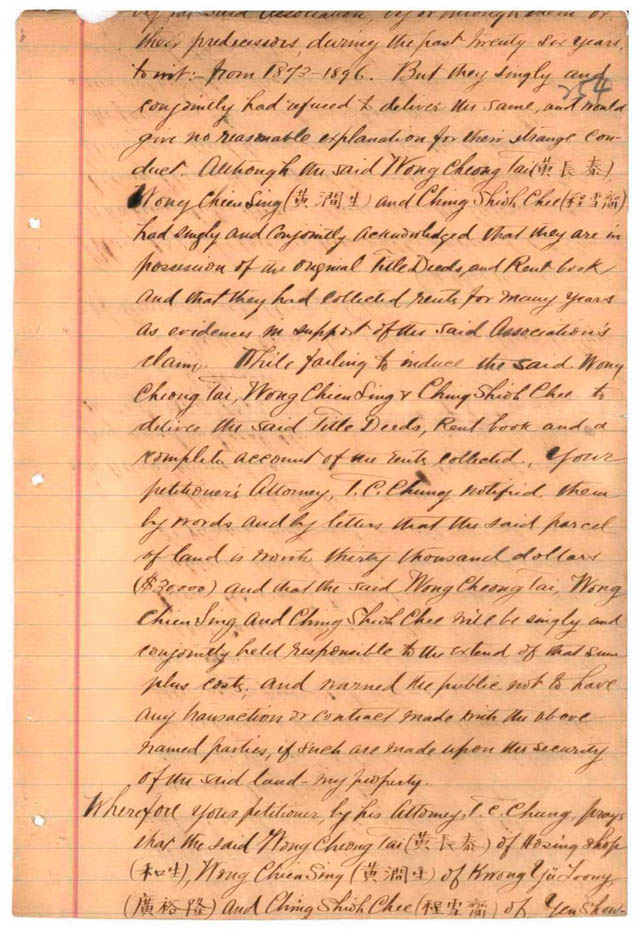 by the said Association, by or through them or
their predecessors, during the past twenty six years,
to wit:- from 1873-1896. But they singly and
254
conjointly had refused to deliver the same, and would
give no reasonable explanation for their strange con-
duct. Although the said Wong Cheong Tai (黃長泰)
Wong Chien Sing (黃潤生) and Ching Shioh Chee (程雪齋)
had singly and conjointly acknowledged that they are in
possession of the original Title Deeds, and Rent book
and that they had collected rents for many years
as evidences in support of the said Association's
claim. While failing to induce the said Wong
Cheong Tai, Wong Chien Sing & Ching Shioh Chee to
deliver the said Title Deeds, Rent-book and a
complete account of the rents collected, Your
petitioner's Attorney, T. C. Chung notified them
by words and by letters that the said parcel
of land is worth thirty thousand dollars
($30,000) and that the said Wong Cheong Tai, Wong
Chien Sing and Ching Shioh Chee will be singly and
conjointly held responsible to the extend of that sum
plus costs, and warned the public not to have
any transaction or contract made with the above
named parties, if such are made upon the security
of the said land - my property.
Wherefore your petitioner, by his Attorney T. C. Chung, prays
that the said Wong Cheong Tai (黃長泰) of Hosing shop
(和生), Wong Chien Sing (黃潤生) of Kwong Yü Loong
(廣裕隆) and Ching Shioh Chee (程雪齋) of Yen Show-